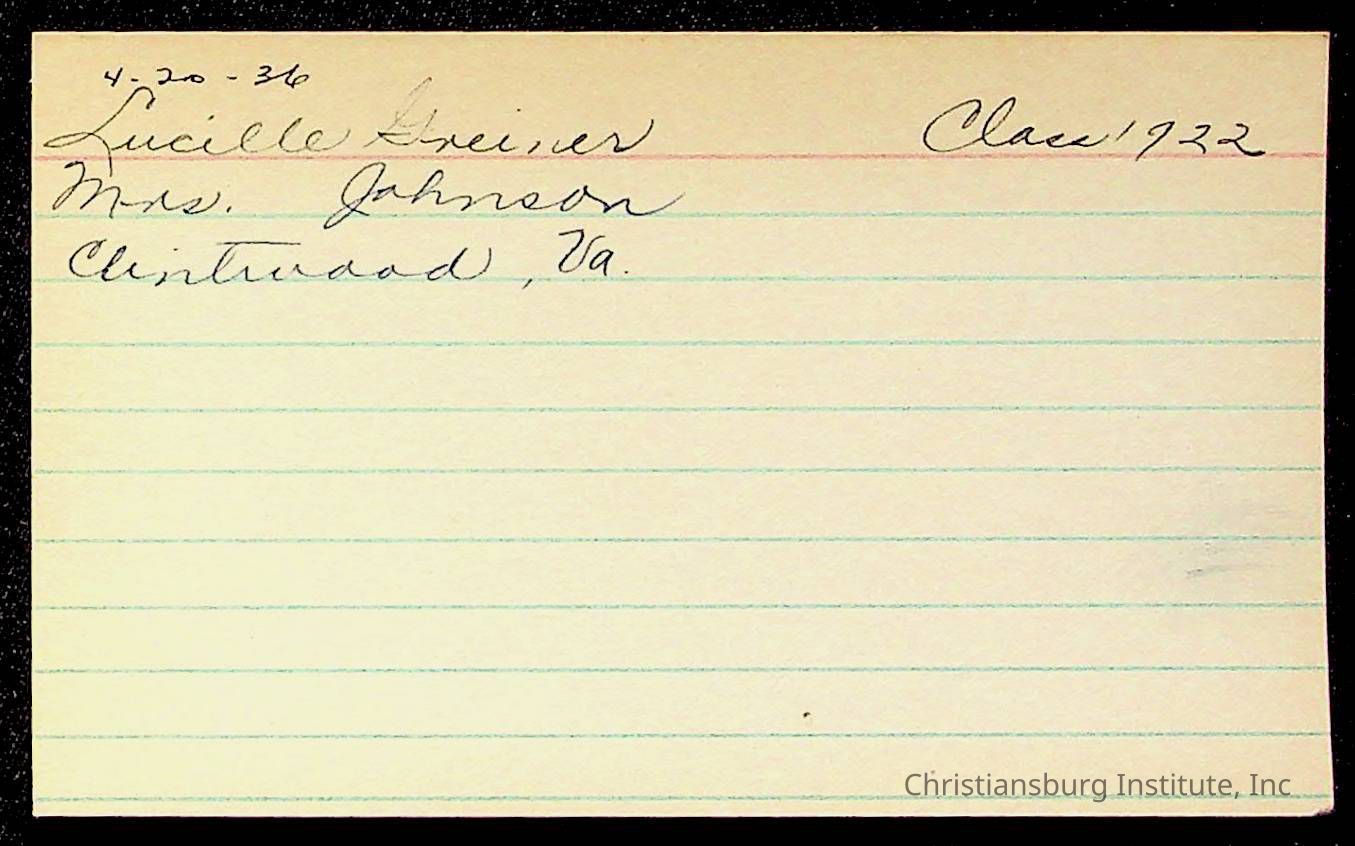 4-20-36
Lucille Greiner Class 1922
Mrs. Johnson
Clintwood, Va.
Christiansburg Institute, Inc